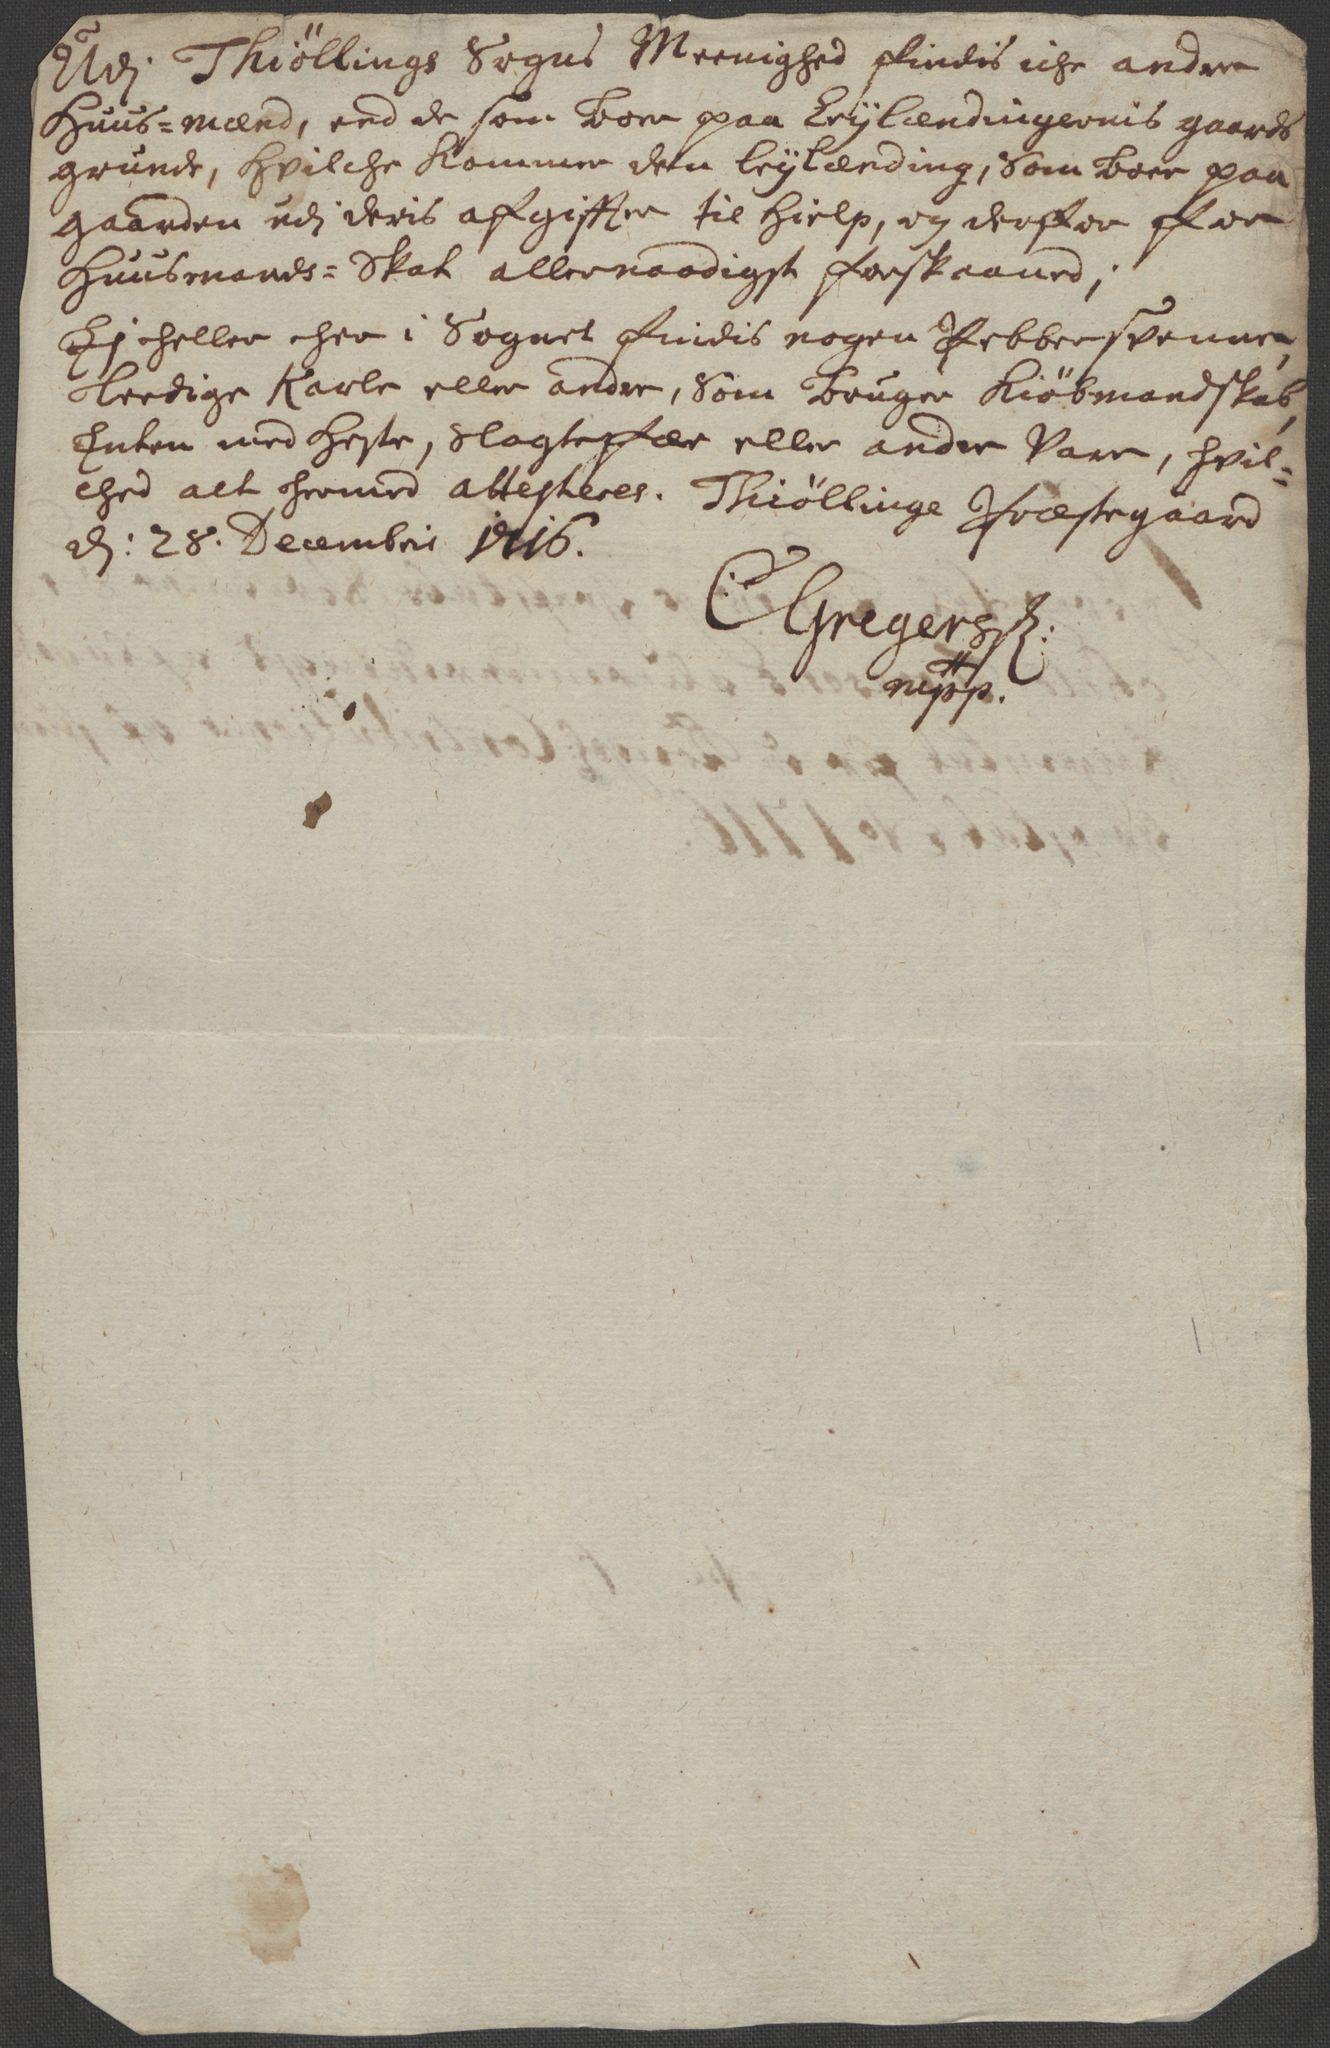 Udj Thiöllings Sogns Meenighed findis iche andre
Huus=mænd, end de som boer paa Leÿlændingernis gaards
grunde, hvilche kommer den leÿlænding, som boer paa
gaarden udj deris afgiffter til hielp, og derffor ffor
Huusmands=Skat allernaadigst forskaaned;
Ej heller her i Sognet findis nogen Pebbersvenne,
Leedige Karle eller andre, som bruger Kiöbmandskab,
Enten med Heste, slagtefæe eller andre Vare, hvil=
ched alt hermed attesteres. Thiöllinge Præstegaard
d: 28. Decembris 1716.
C Gregerss:
mpp.